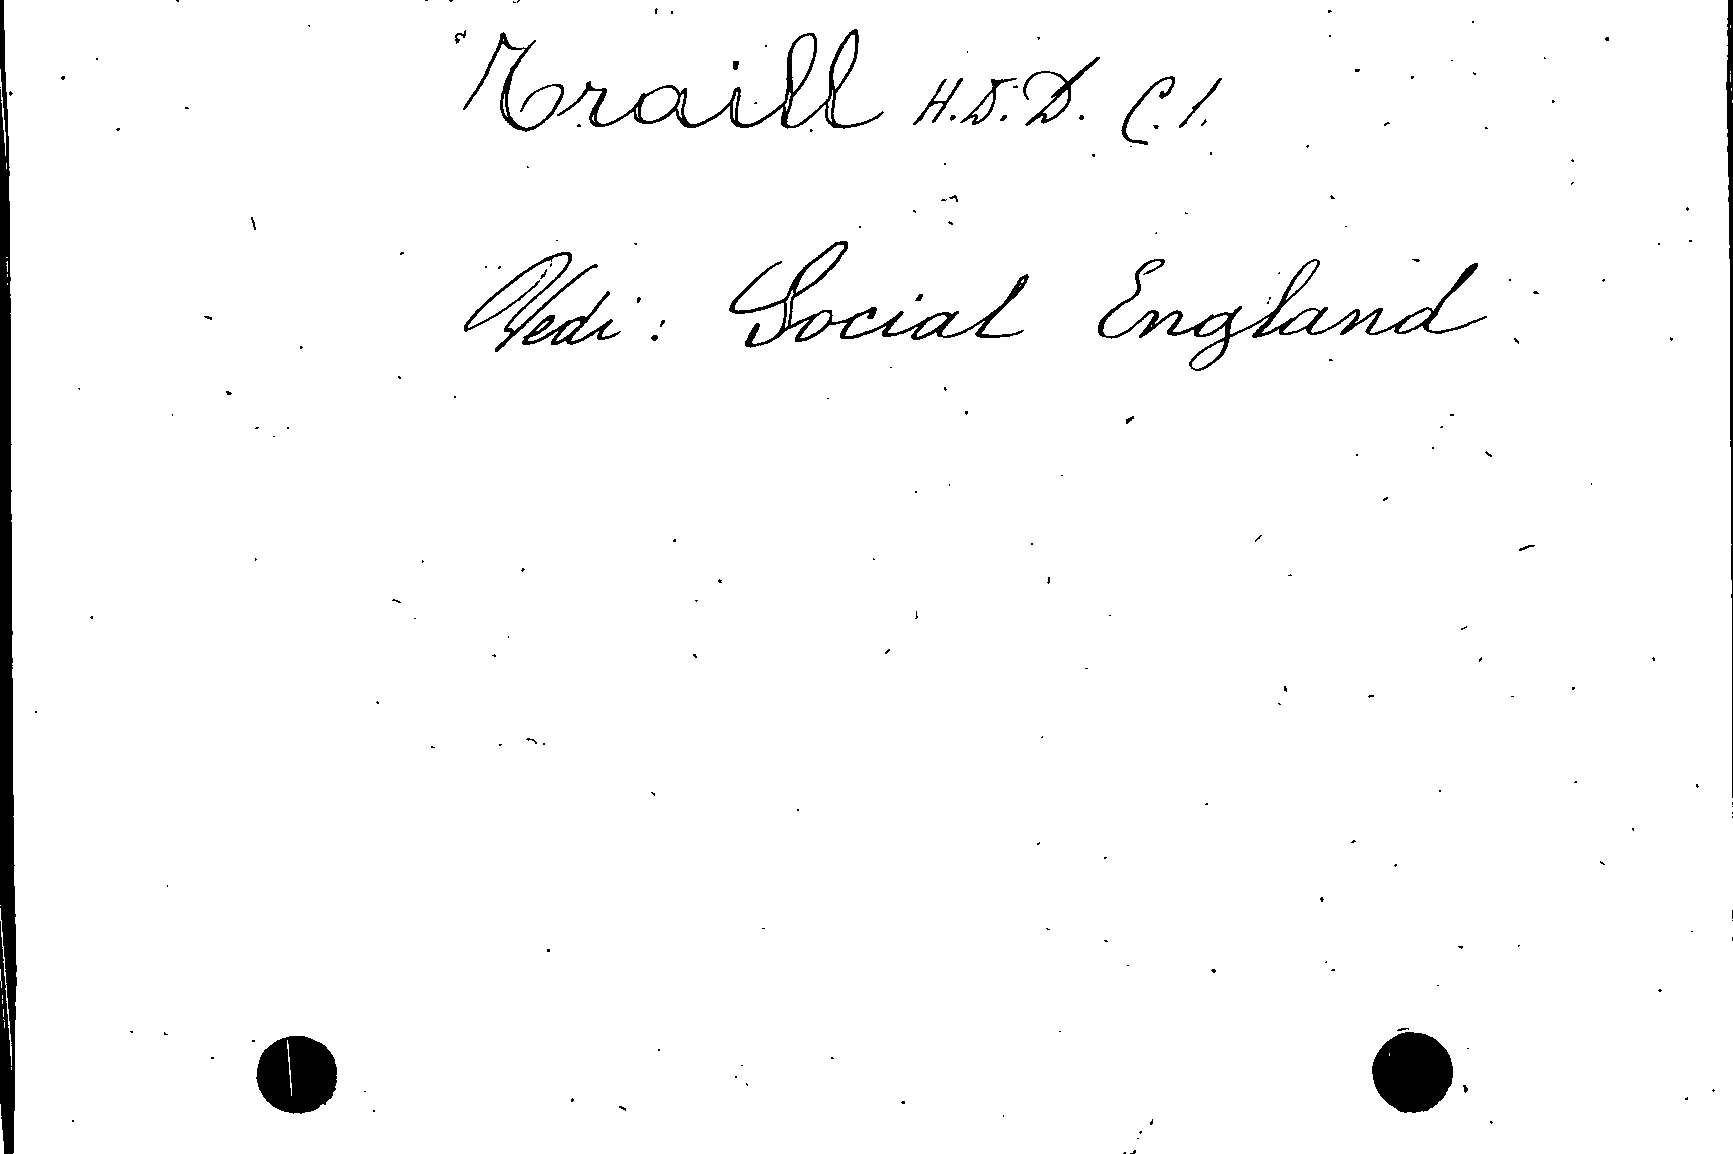 Traill H.D. D. C. l.
Vedi: Social England